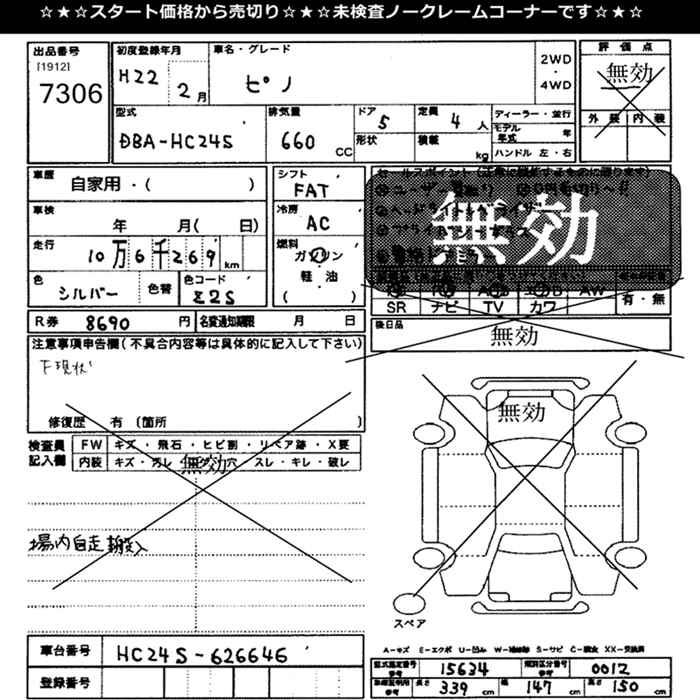 ☆★☆★スタート価格から売切り☆★☆★未検査ノークレームコーナーです☆★☆
出品番号
[1912]
7306
初度登録年月
H22 2月
車名・グレード
ピノ
2WD
・
4WD
評価点
無効
外装 内装
型式
DBA-HC24S
排気量
660 CC
ドア
5
形状
定員
4人
積載
kg
ディーラー・並行
モデル年式 年
ハンドル 左・右
車歴
自家用・( )
車検
年 月( 日)
走行
10万6千269km
色
シルバー
色替
色コード
Z2S
シフト
FAT
冷房
AC
燃料
ガソリン
軽・油
( )
無効
AW
SR ナビ TV カワ
有・無
R券 8690 円
名変通知期限 月 日
後日品
無効
注意事項申告欄(不具合内容等は具体的に記入して下さい)
下現状
修復歴 有 〔箇所
検査員記入欄
FW キズ・飛石・ヒビ割・リペア跡・X要
内装 キズ・汚レ・コゲ穴・スレ・キレ・破レ
無効
場内自走搬入
無効
スペア
車台番号
HC24S-626646
登録番号
A-キズ E-エクボ U-凹ミ W-補修跡 S-サビ C-腐食 XX-交換済
型式指定番号 参考
15634
類別区分番号 参考
0012
車検証判明 参考
長さ 339 cm
幅 147 cm
高さ 150 cm